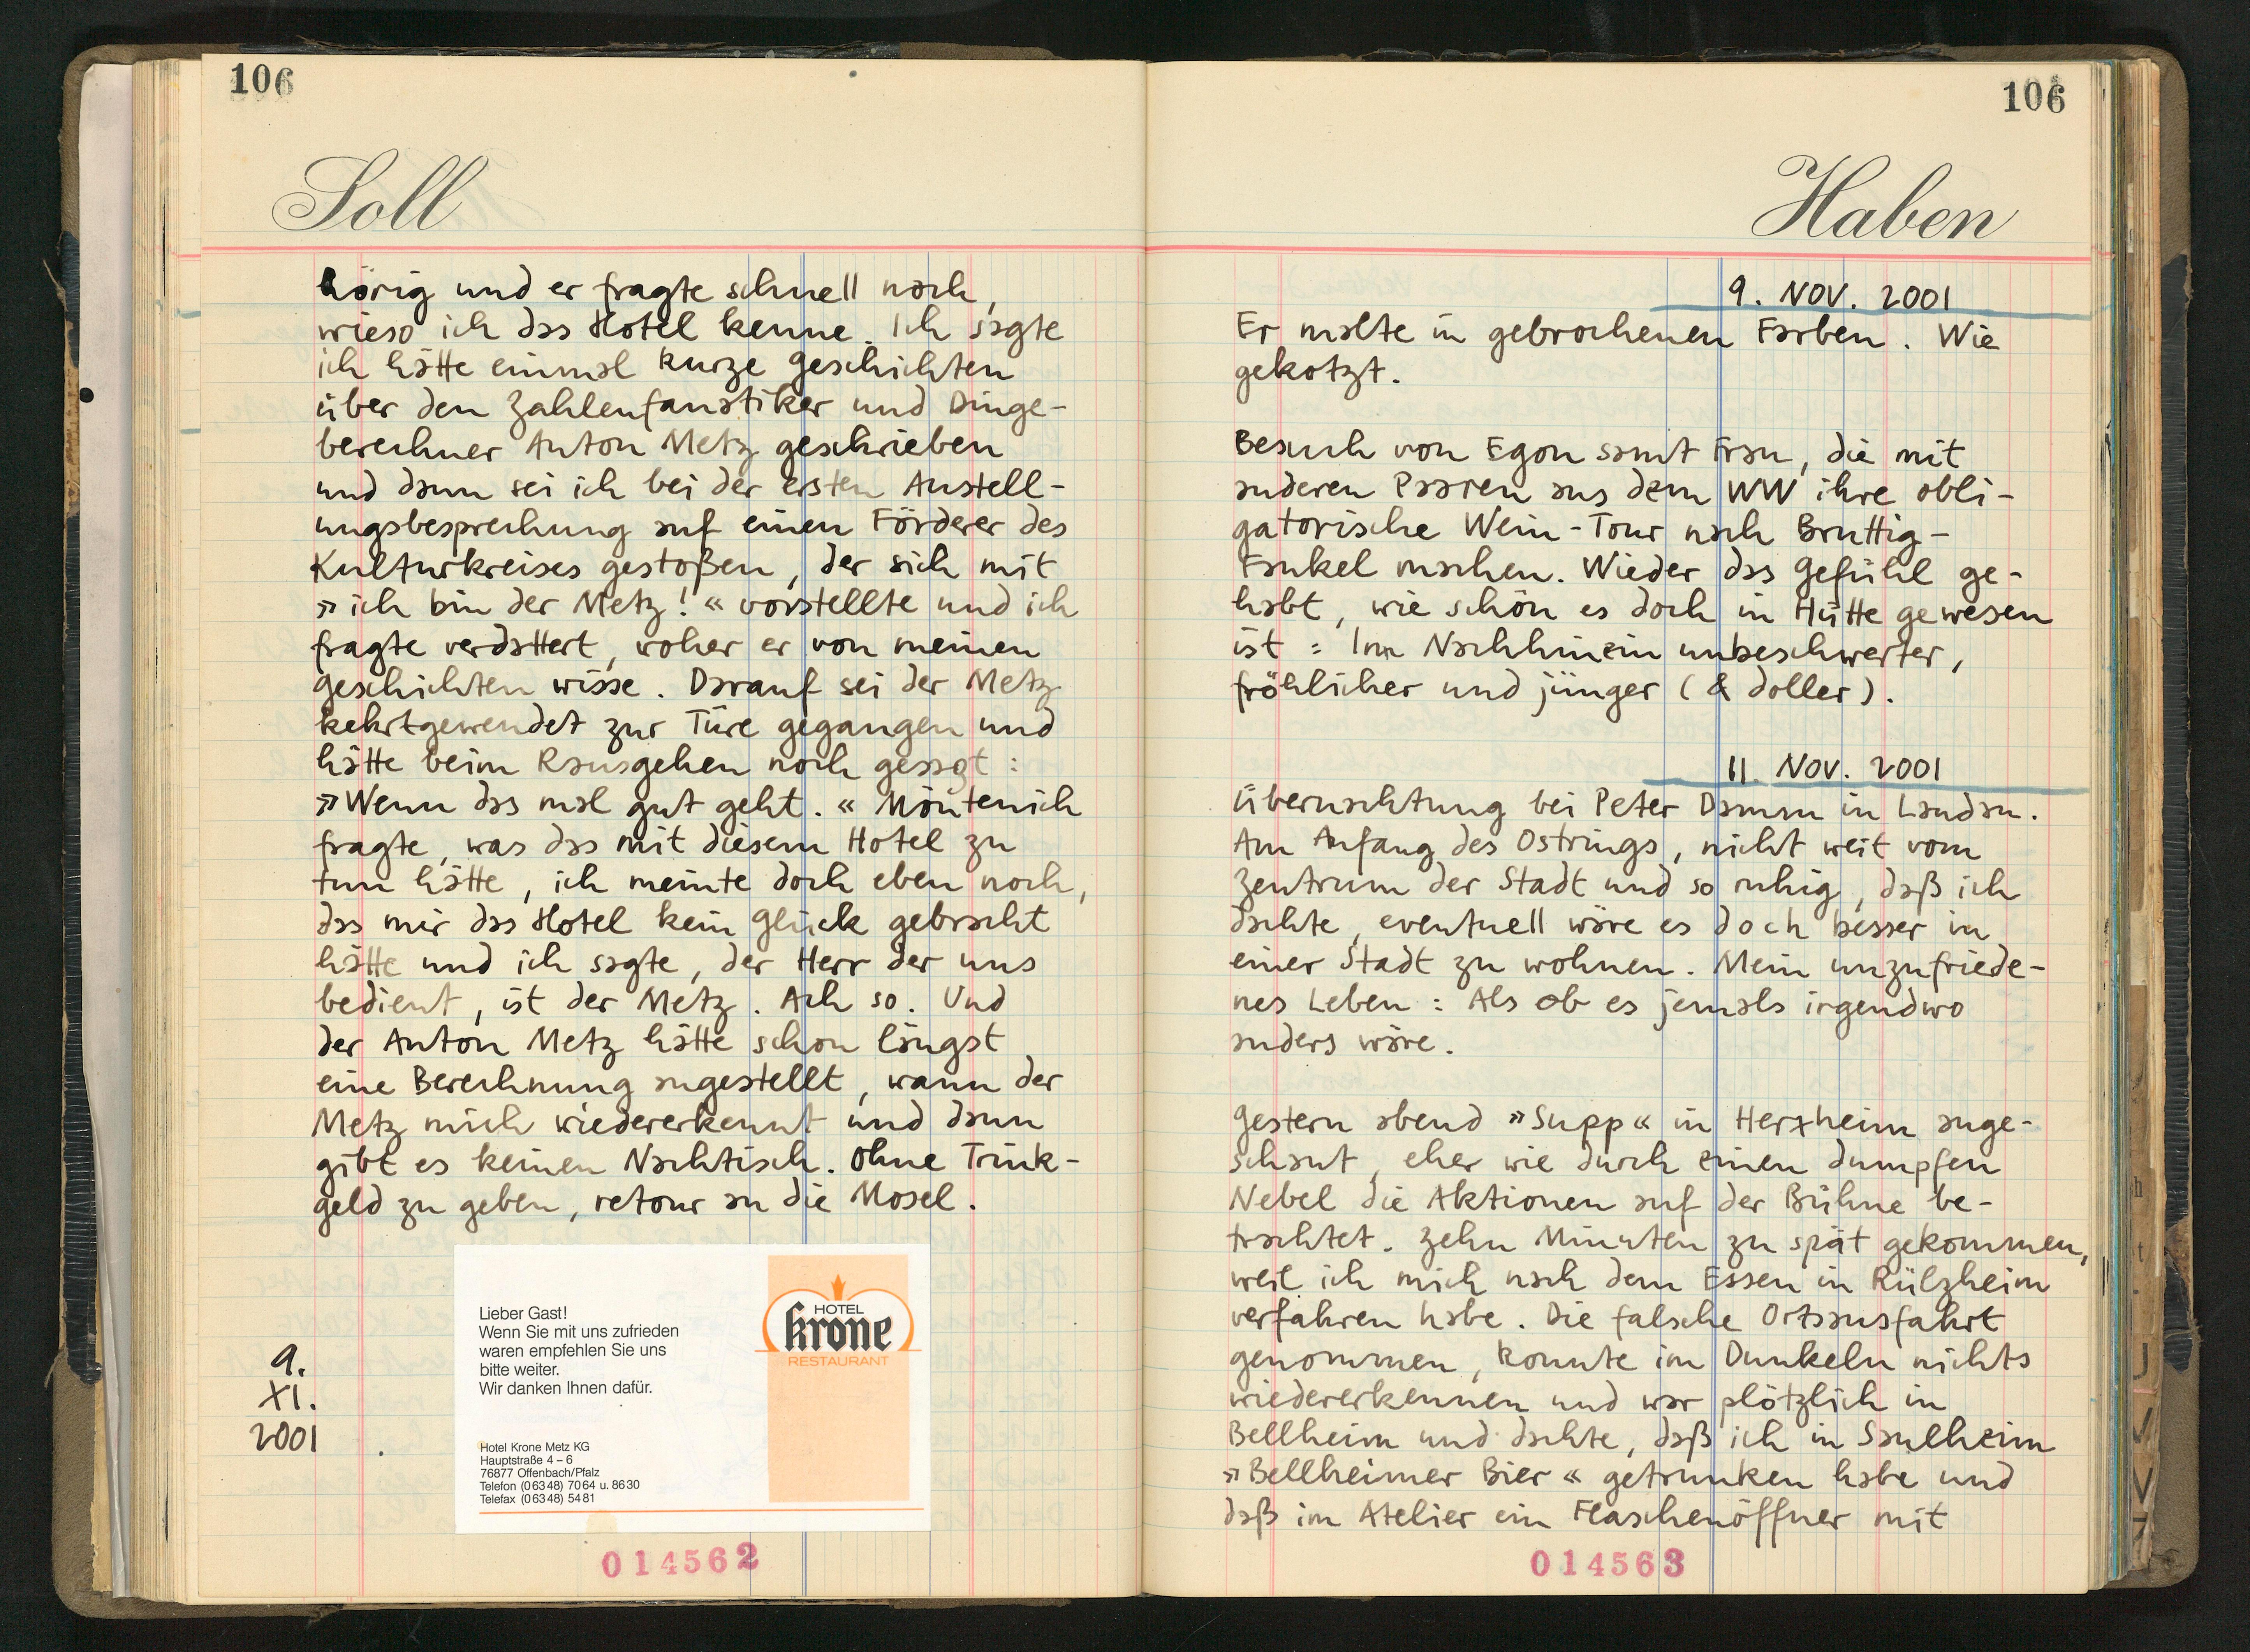 106
Soll
hörig und er fragte schnell noch,
wieso ich das Hotel kenne. Ich sagte
ich hätte einmal kurze Geschichten
über den Zahlenfanatiker und Dinge-
berechner Anton Metz geschrieben
und dann sei ich bei der ersten Austell-
ungsbesprechung auf einen Förderer des
Kulturkreises gestoßen, der sich mit
»ich bin der Metz!« vorstellte und ich
fragte verdattert, woher er von meinen
Geschichten wisse. Darauf sei der Metz
kehrtgewendet zur Türe gegangen und
hätte beim Rausgehen noch gesagt:
»Wenn das mal gut geht.« Möntenich
fragte, was das mit diesem Hotel zu
tun hätte, ich meinte doch eben noch,
das mir das Hotel kein Glück gebracht
hätte und ich sagte, der Herr der uns
bedient, ist der Metz. Ach so. Und
der Anton Metz hätte schon längst
eine Berechnung angestellt, wann der
Metz mich wiedererkennt und dann
gibt es keinen Nachtisch. Ohne Trink-
geld zu geben, retour an die Mosel.
9.
XI.
2001
Lieber Gast!
Wenn Sie mit uns zufrieden
waren empfehlen Sie uns
bitte weiter.
Wir danken Ihnen dafür.
HOTEL
krone
RESTAURANT
Hotel Krone Metz KG
Hauptstraße 4 – 6
76877 Offenbach/Pfalz
Telefon (0 63 48) 70 64 u. 86 30
Telefax (0 63 48) 54 81
014562
106
Haben
9. NOV. 2001
Er malte in gebrochenen Farben. Wie
gekotzt.
Besuch von Egon samt Frau, die mit
anderen Paaren aus dem WW ihre obli-
gatorische Wein-Tour nach Bruttig-
Fankel machen. Wieder das Gefühl ge-
habt, wie schön es doch in Hütte gewesen
ist: Im Nachhinein unbeschwerter,
fröhlicher und jünger (& doller).
11. NOV. 2001
Übernachtung bei Peter Damm in Landau.
Am Anfang des Ostrings, nicht weit vom
Zentrum der Stadt und so ruhig, daß ich
dachte, eventuell wäre es doch besser in
einer Stadt zu wohnen. Mein unzufriede-
nes Leben: Als ob es jemals irgendwo
anders wäre.
Gestern abend »Supp« in Herxheim ange-
schaut, eher wie durch einen dumpfen
Nebel die Aktionen auf der Bühne be-
trachtet. Zehn Minuten zu spät gekommen,
weil ich mich nach dem Essen in Rülzheim
verfahren habe. Die falsche Ortsausfahrt
genommen, konnte im Dunkeln nichts
wiedererkennen und war plötzlich in
Bellheim und dachte, daß ich in Saulheim
»Bellheimer Bier« getrunken habe und
daß im Atelier ein Flaschenöffner mit
014563